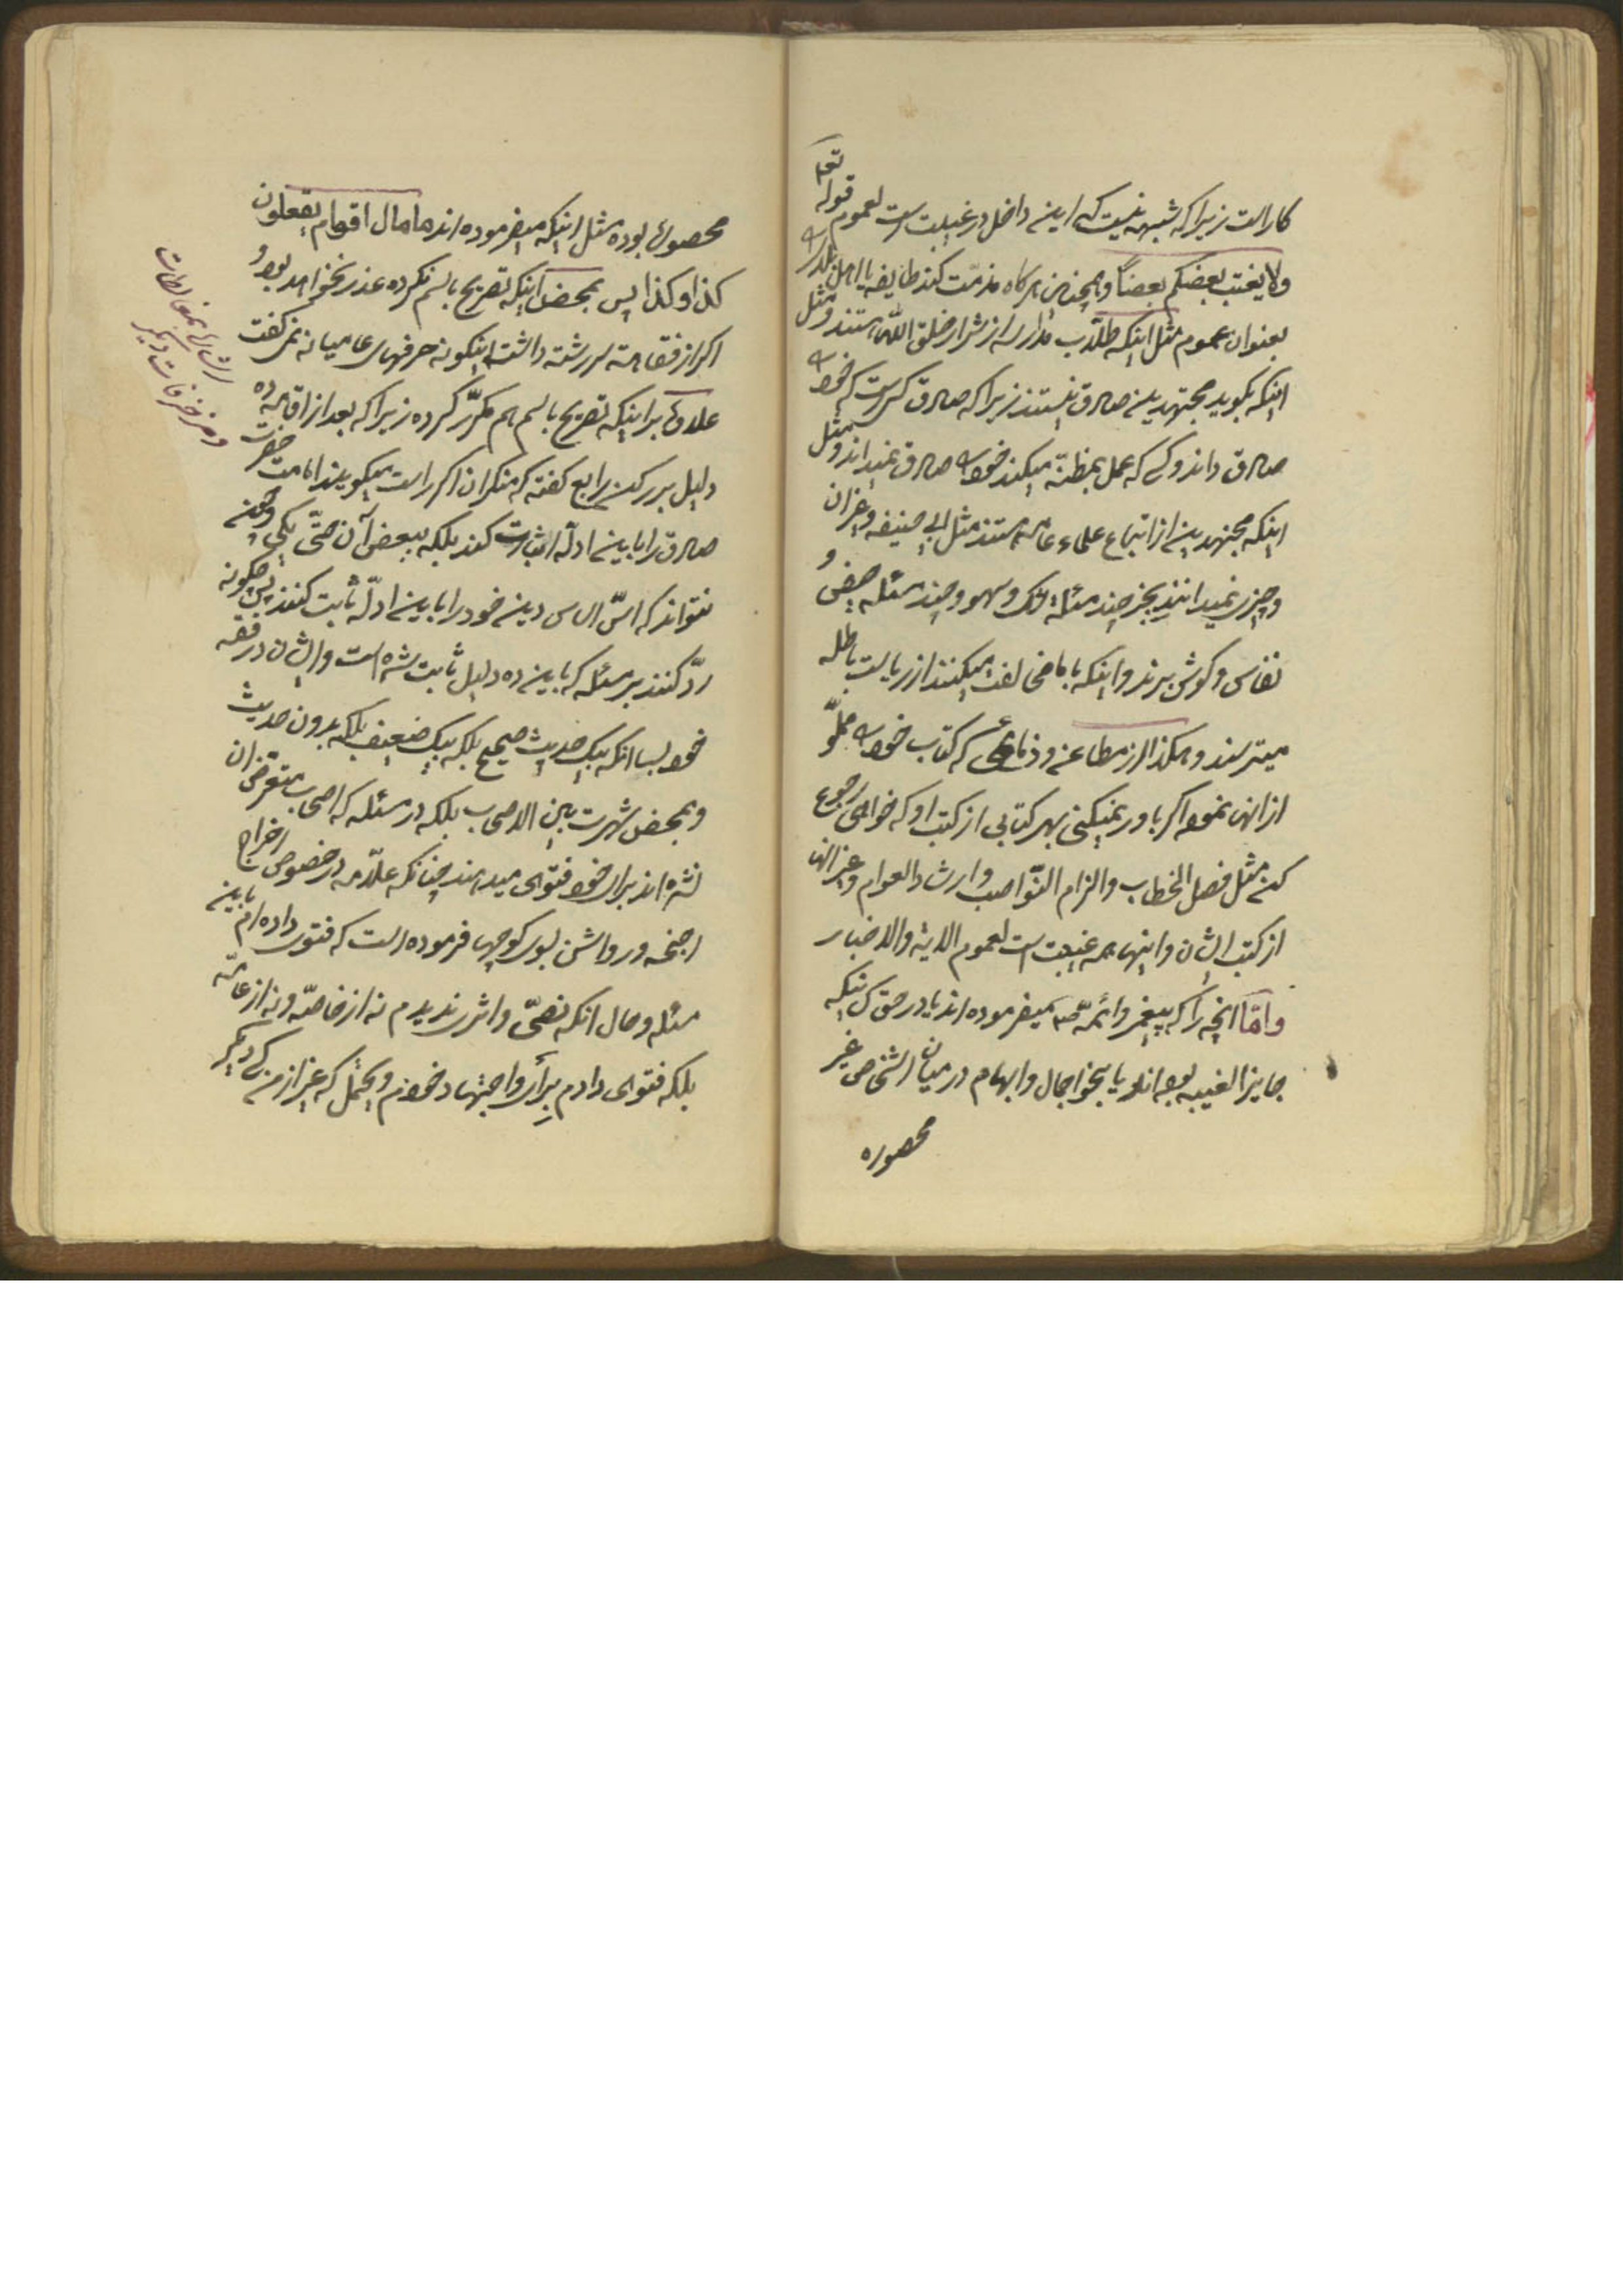 کار است زیرا که شبهه نیست که این داخل در غیبت است لعموم قوله تعم
ولا یغتب بعضکم بعضاً و همچنین هر گاه مذمّت کند طایفه یا اهل بلدی را
بعنوان عموم مثل اینکه طلّاب مدارس از شرار خلق اللّه هستند و مثل
اینکه بگوید مجتهدین صادق نیستند زیرا که صادق کسی است که خود را
صادق داند و کسی که عمل بمظنّه میکند خود را صادق نمیداند و مثل
اینکه مجتهدین از اتباع علماء عامّه هستند مثل ابی حنیفه و غیر آن
و چیزی نمیدانند بجز چند مسئله شک و سهو و چند مسئله حیض و
نفاس و گوش ببرند و اینکه با ما مخالفت میکنند از ریاست باطله
میترسند و هکذا از مطاعن و ذمائمی که کتاب خود را مملوّ
از آنها نموده اگر باور نمیکنی بهر کتابی از کتب او که خواهی رجوع
کن مثل فصل الخطاب و الزام النّواصب و ارشاد العوام و غیر آنها
از کتب ایشان و اینها همه غیبت است لعموم الایة والاخبار
وامّا آنچه را که پیغمبر و ائمّه ص میفرموده اند یا در حق کسانیکه
جایز الغیبه بوده اند یا بنحو اجمال و ابهام در میان اشخاص غیر
محصوره
محصوره بوده مثل اینکه میفرموده اند ها مابال اقوام یفعلون
کذا و کذا پس بمحض اینکه تصریح باسم نکرده عذر نخواهد بود و
اگر از فقاهت سررشته داشت اینگونه حرفهای عامیانه نمی گفت
علاوه بر اینکه تصریح باسم هم مکرّر کرده زیرا که بعد از اقامه ده
دلیل بر رکن رابع گفته که منکران اگر راست میگویند امامت حضرت
صادق را باین ادلّه اثبات کنند بلکه ببعض آن حتّی یکی و چون
نتوانند که اسّ اساس دین خود را باین ادلّه ثابت کنند پس چگونه
ردّ کنند بر مسئله که باین ده دلیل ثابت شده است و ایشان در فقه
خود بسا آنکه بیک حدیث صحیح بلکه بیک ضعیف بلکه بدون حدیث
و بمحض شهرت بین الاصحاب بلکه در مسئله که اصحاب متعرّض آن
نشده اند برای خود فتوی میدهند چنانکه علّامه در خصوص اخراج
اجنحه و رواشن بسوی کوچها فرموده است که فتوی داده ام باین
مسئله و حال آنکه نصّی و اثری ندیدم نه از خاصّه و نه از عامّه
بلکه فتوی دادم برأی و اجتهاد خودم و یحتمل که غیر از من کسی دیگر